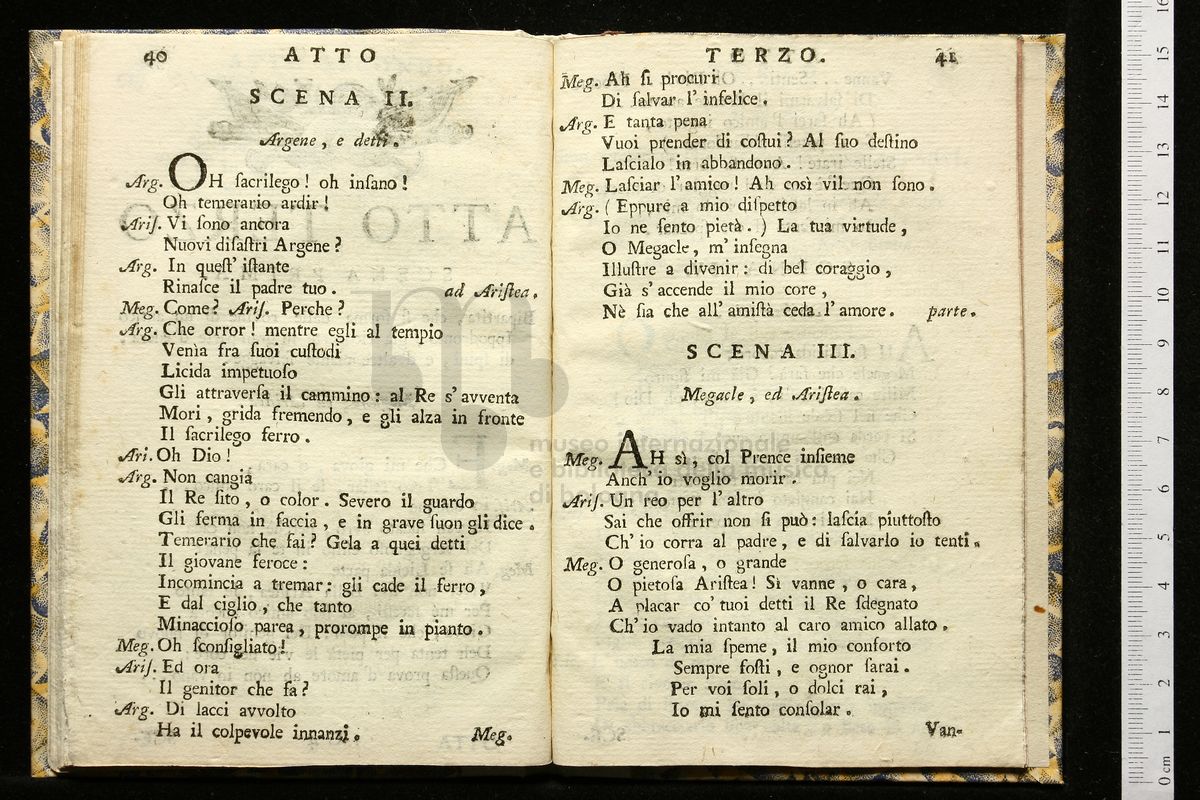 40 ATTO
SCENA II.
Argene, e detti.
Arg. OH ſacrilego! oh inſano!
Oh temerario ardir!
Ariſ. Vi ſono ancora
Nuovi diſaſtri Argene?
Arg. In queſt' iſtante
Rinaſce il padre tuo. ad Ariſtea.
Meg. Come? Ariſ. Perche?
Arg. Che orror! mentre egli al tempio
Venìa fra ſuoi cuſtodi
Licida impetuoſo
Gli attraverſa il cammino: al Re s'avventa
Mori, grida fremendo, e gli alza in fronte
Il ſacrilego ferro.
Ari. Oh Dio!
Arg. Non cangia
Il Re ſito, o color. Severo il guardo
Gli ferma in faccia, e in grave ſuon gli dice.
Temerario che fai? Gela a quei detti
Il giovane feroce:
Incomincia a tremar: gli cade il ferro,
E dal ciglio, che tanto
Minaccioſo parea, prorompe in pianto.
Meg. Oh ſconſigliato!
Ariſ. Ed ora
Il genitor che fa?
Arg. Di lacci avvolto
Ha il colpevole innanzi.
Meg.
TERZO. 41
Meg. Ah ſi procuri
Di ſalvar l' infelice.
Arg. E tanta pena
Vuoi prender di coſtui? Al ſuo deſtino
Laſcialo in abbandono.
Meg. Laſciar l' amico! Ah così vil non ſono.
Arg. (Eppure a mio diſpetto
Io ne ſento pietà.) La tua virtude,
O Megacle, m' inſegna
Illuſtre a divenir: di bel coraggio,
Già s' accende il mio core,
Nè ſia che all' amiſtà ceda l' amore. parte.
SCENA III.
Megacle, ed Ariſtea.
Meg. AH sì, col Prence inſieme
Anch' io voglio morir.
Ariſ. Un reo per l' altro
Sai che offrir non ſi può: laſcia piuttoſto
Ch' io corra al padre, e di ſalvarlo io tenti.
Meg. O generoſa, o grande
O pietoſa Ariſtea! Sì vanne, o cara,
A placar co' tuoi detti il Re ſdegnato
Ch' io vado intanto al caro amico allato.
La mia ſpeme, il mio conforto
Sempre foſti, e ognor ſarai.
Per voi ſoli, o dolci rai,
Io mi ſento conſolar.
Van-
museo internazionale
e biblioteca della musica
di bologna
0 cm 1 2 3 4 5 6 7 8 9 10 11 12 13 14 15 16